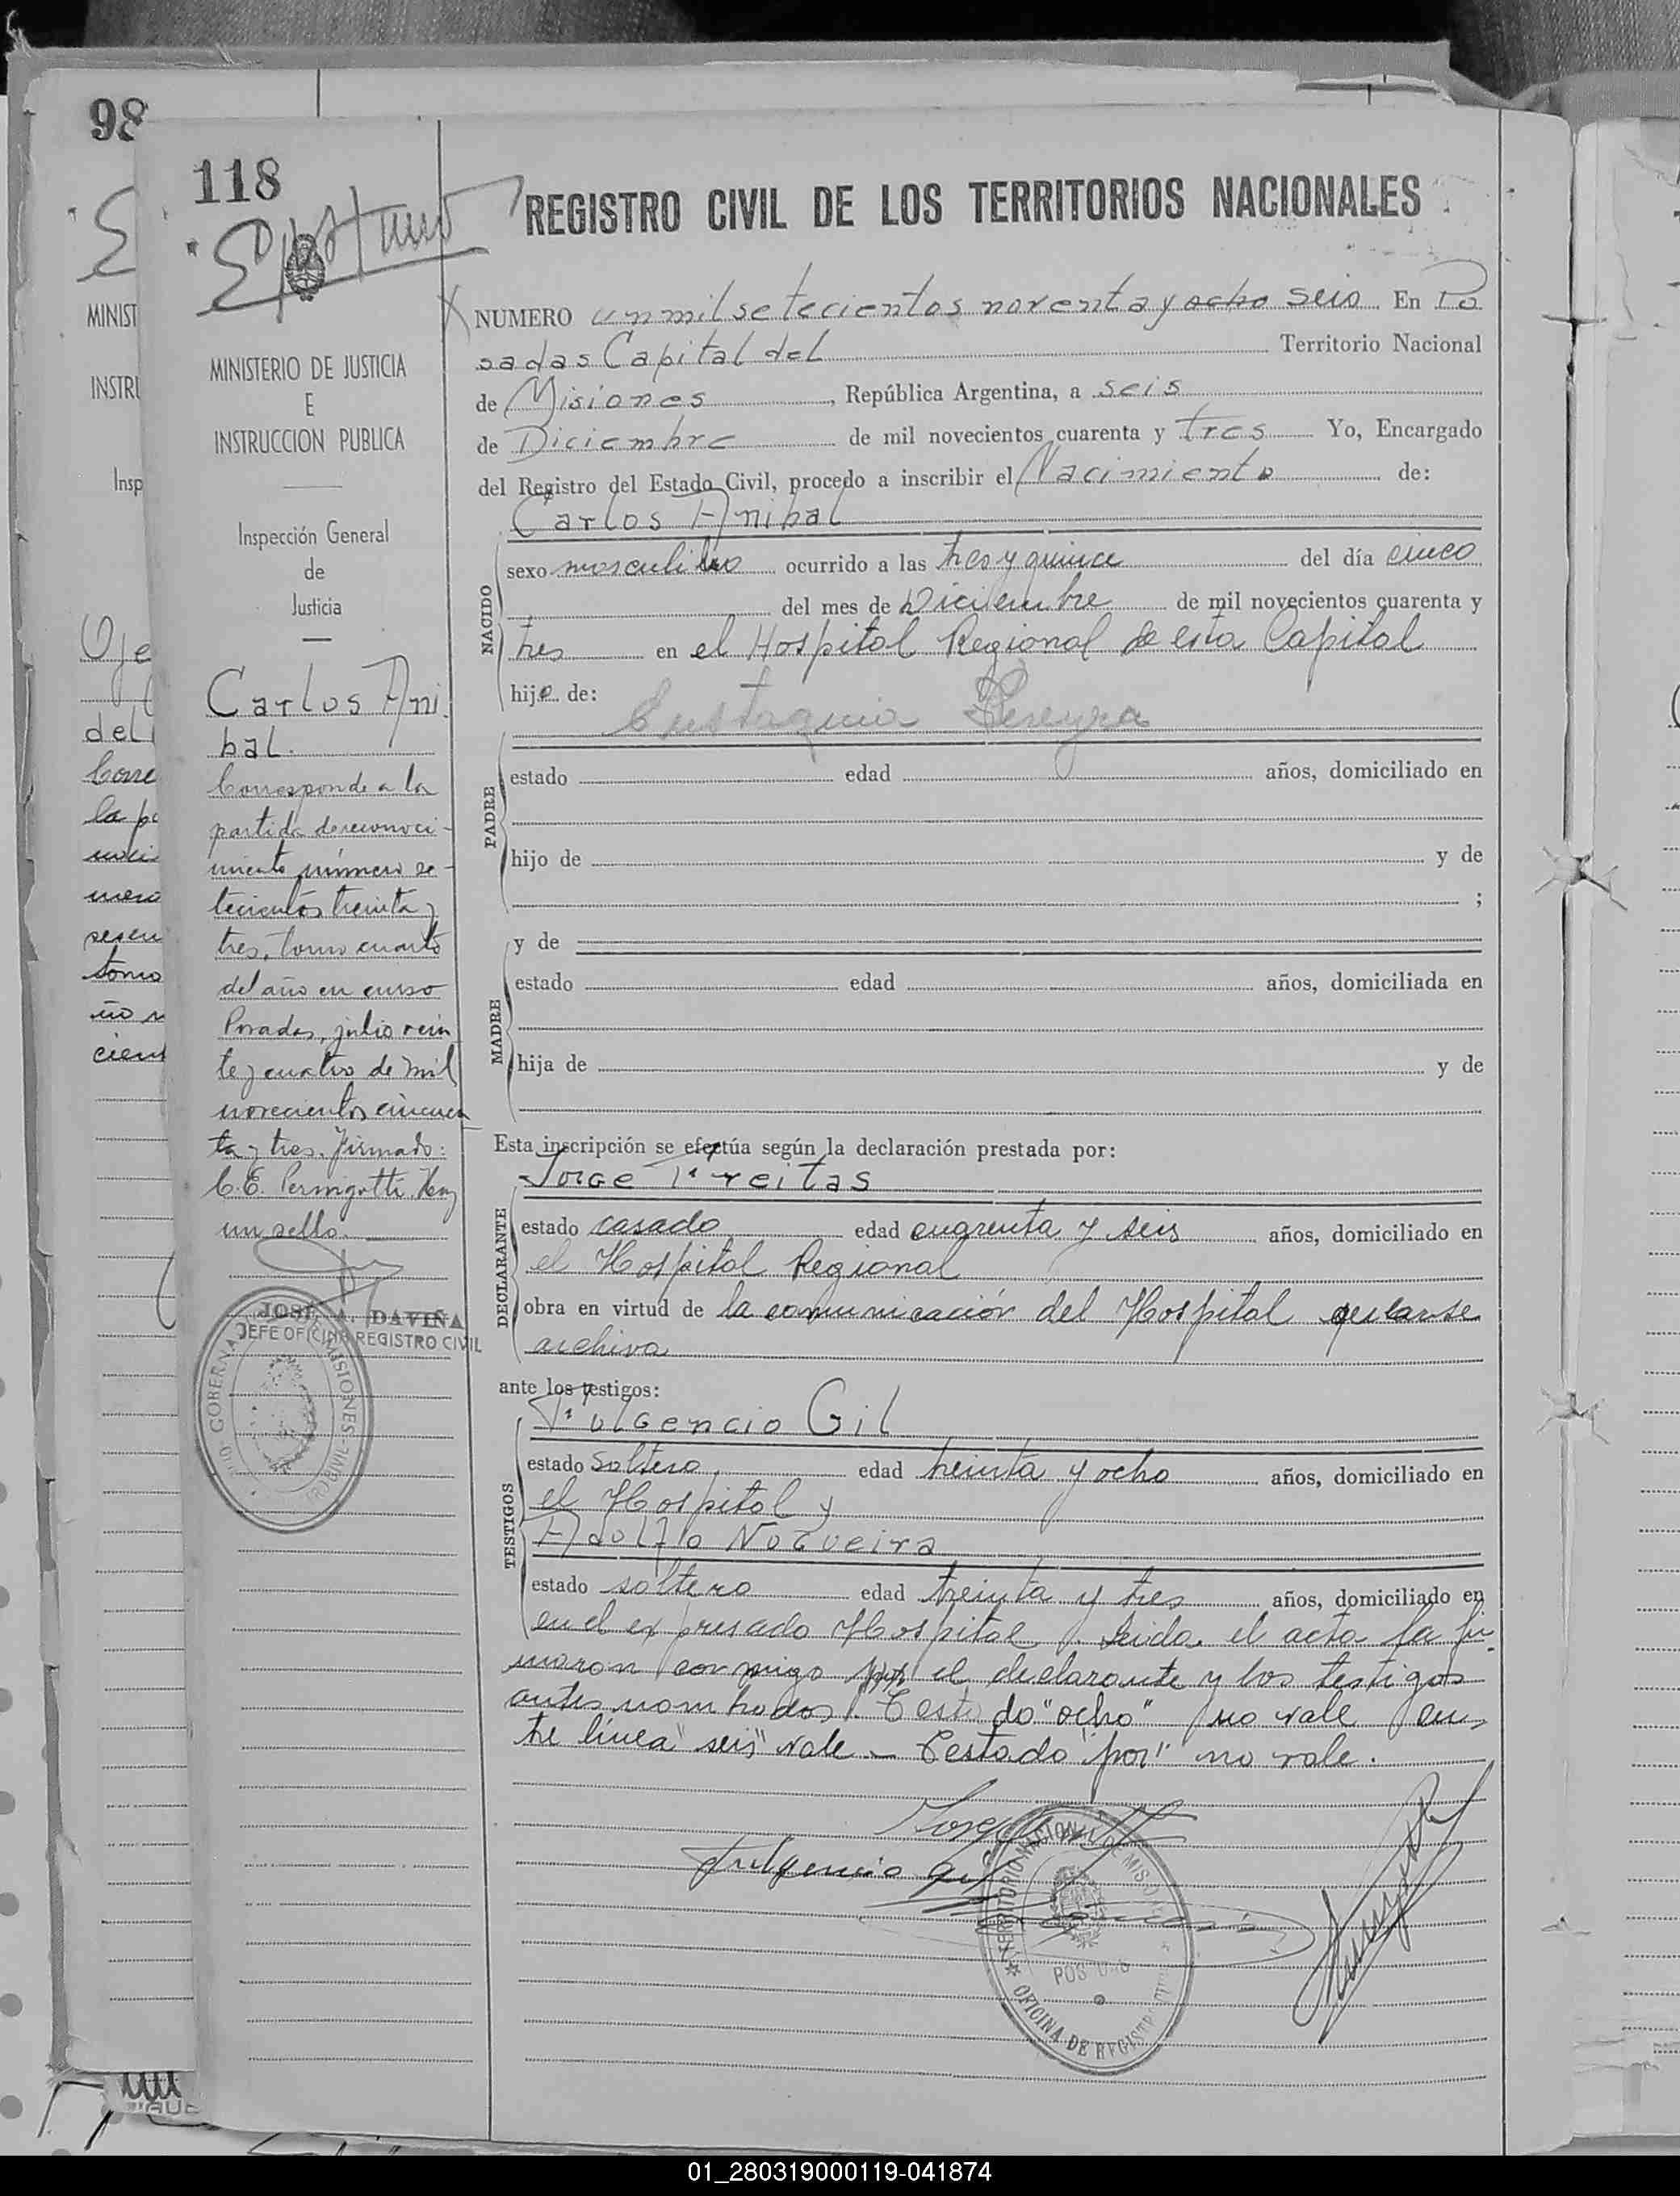 98
118
REGISTRO CIVIL DE LOS TERRITORIOS NACIONALES
MINIST
INSTRU
Insp
Oje
del
Corre
la pa
noci
mero
sesen
tomo
ño n
cient
MINISTERIO DE JUSTICIA
E
INSTRUCCION PUBLICA
Inspección General
de
Justicia
Carlos Ani
bal.
Corresponde a la
partida de reconoci-
miento número se-
tecientos treinta y
tres, tomo cuarto
del año en curso
Posadas, julio vein
te y cuatro de mil
novecientos cincuen
ta y tres. Firmado:
C. E. Permigotti. Hay
un sello.
JOSE A. DAVIÑA
JEFE OFICINA REGISTRO CIVIL
GOBERNA MISIONES
NUMERO un mil setecientos noventa y ocho seis En Po
sadas Capital del Territorio Nacional
de Misiones, República Argentina, a seis
de Diciembre de mil novecientos cuarenta y tres Yo, Encargado
del Registro del Estado Civil, procedo a inscribir el Nacimiento de:
Carlos Anibal
NACIDO
sexo masculino ocurrido a las tres y quince del día cinco
del mes de Diciembre de mil novecientos cuarenta y
tres en el Hospital Regional de esta Capital
hijo de:
Eustaquia Pereyra
PADRE
estado edad años, domiciliado en
hijo de y de
;
y de
MADRE
estado edad años, domiciliada en
hija de y de
Esta inscripción se efectúa según la declaración prestada por:
Jorge Freitas
DECLARANTE
estado casado edad cuarenta y seis años, domiciliado en
el Hospital Regional
obra en virtud de la comunicación del Hospital que se
archiva
ante los testigos:
Fulgencio Gil
TESTIGOS
estado soltero edad treinta y ocho años, domiciliado en
el Hospital y
Adolfo Nogueira
estado soltero edad treinta y tres años, domiciliado en
en el expresado Hospital. Leida el acta la fir
maron conmigo por el declarante y los testigos
antes nombrados. Testado "ocho" no vale en-
tre línea "seis" vale - Testado "por" no vale.
Fulgencio Gil
TERRITORIO NACIONAL DE MISIONES
POSADAS
OFICINA DE REGISTRO
01_280319000119-041874